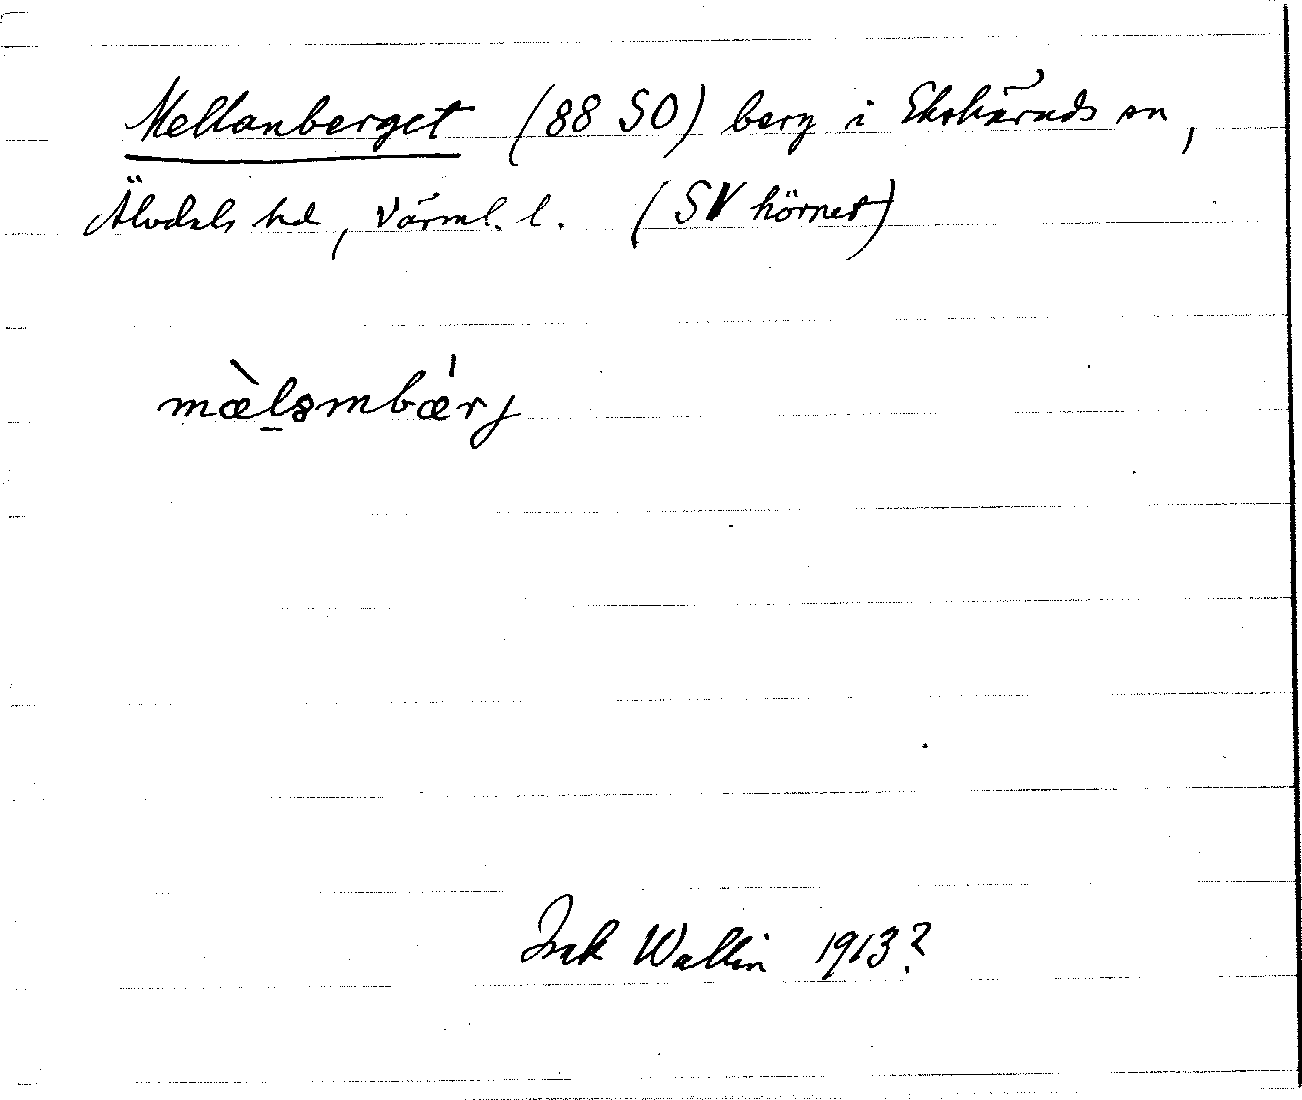 Mellanberget (88 SO) berg i Ekshärads sn,
Älvdals hd, Värml. l. (SV hörnet)
mæ̀l̠əmbæ̍rj
Wallin 1913?